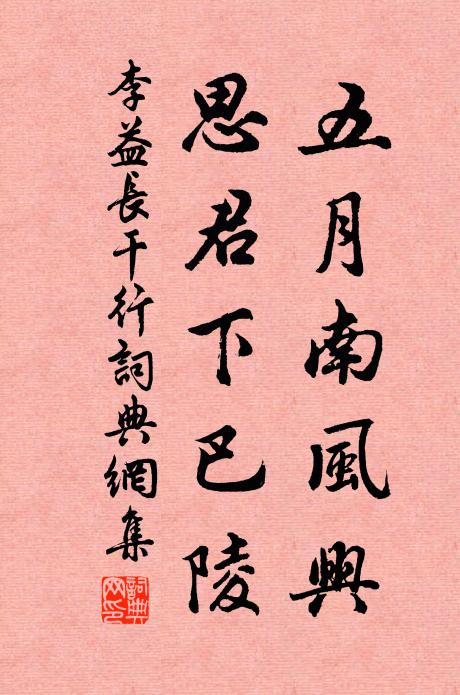 五月南風興
思君下巴陵
李益長干行詞典網集
詞典網印